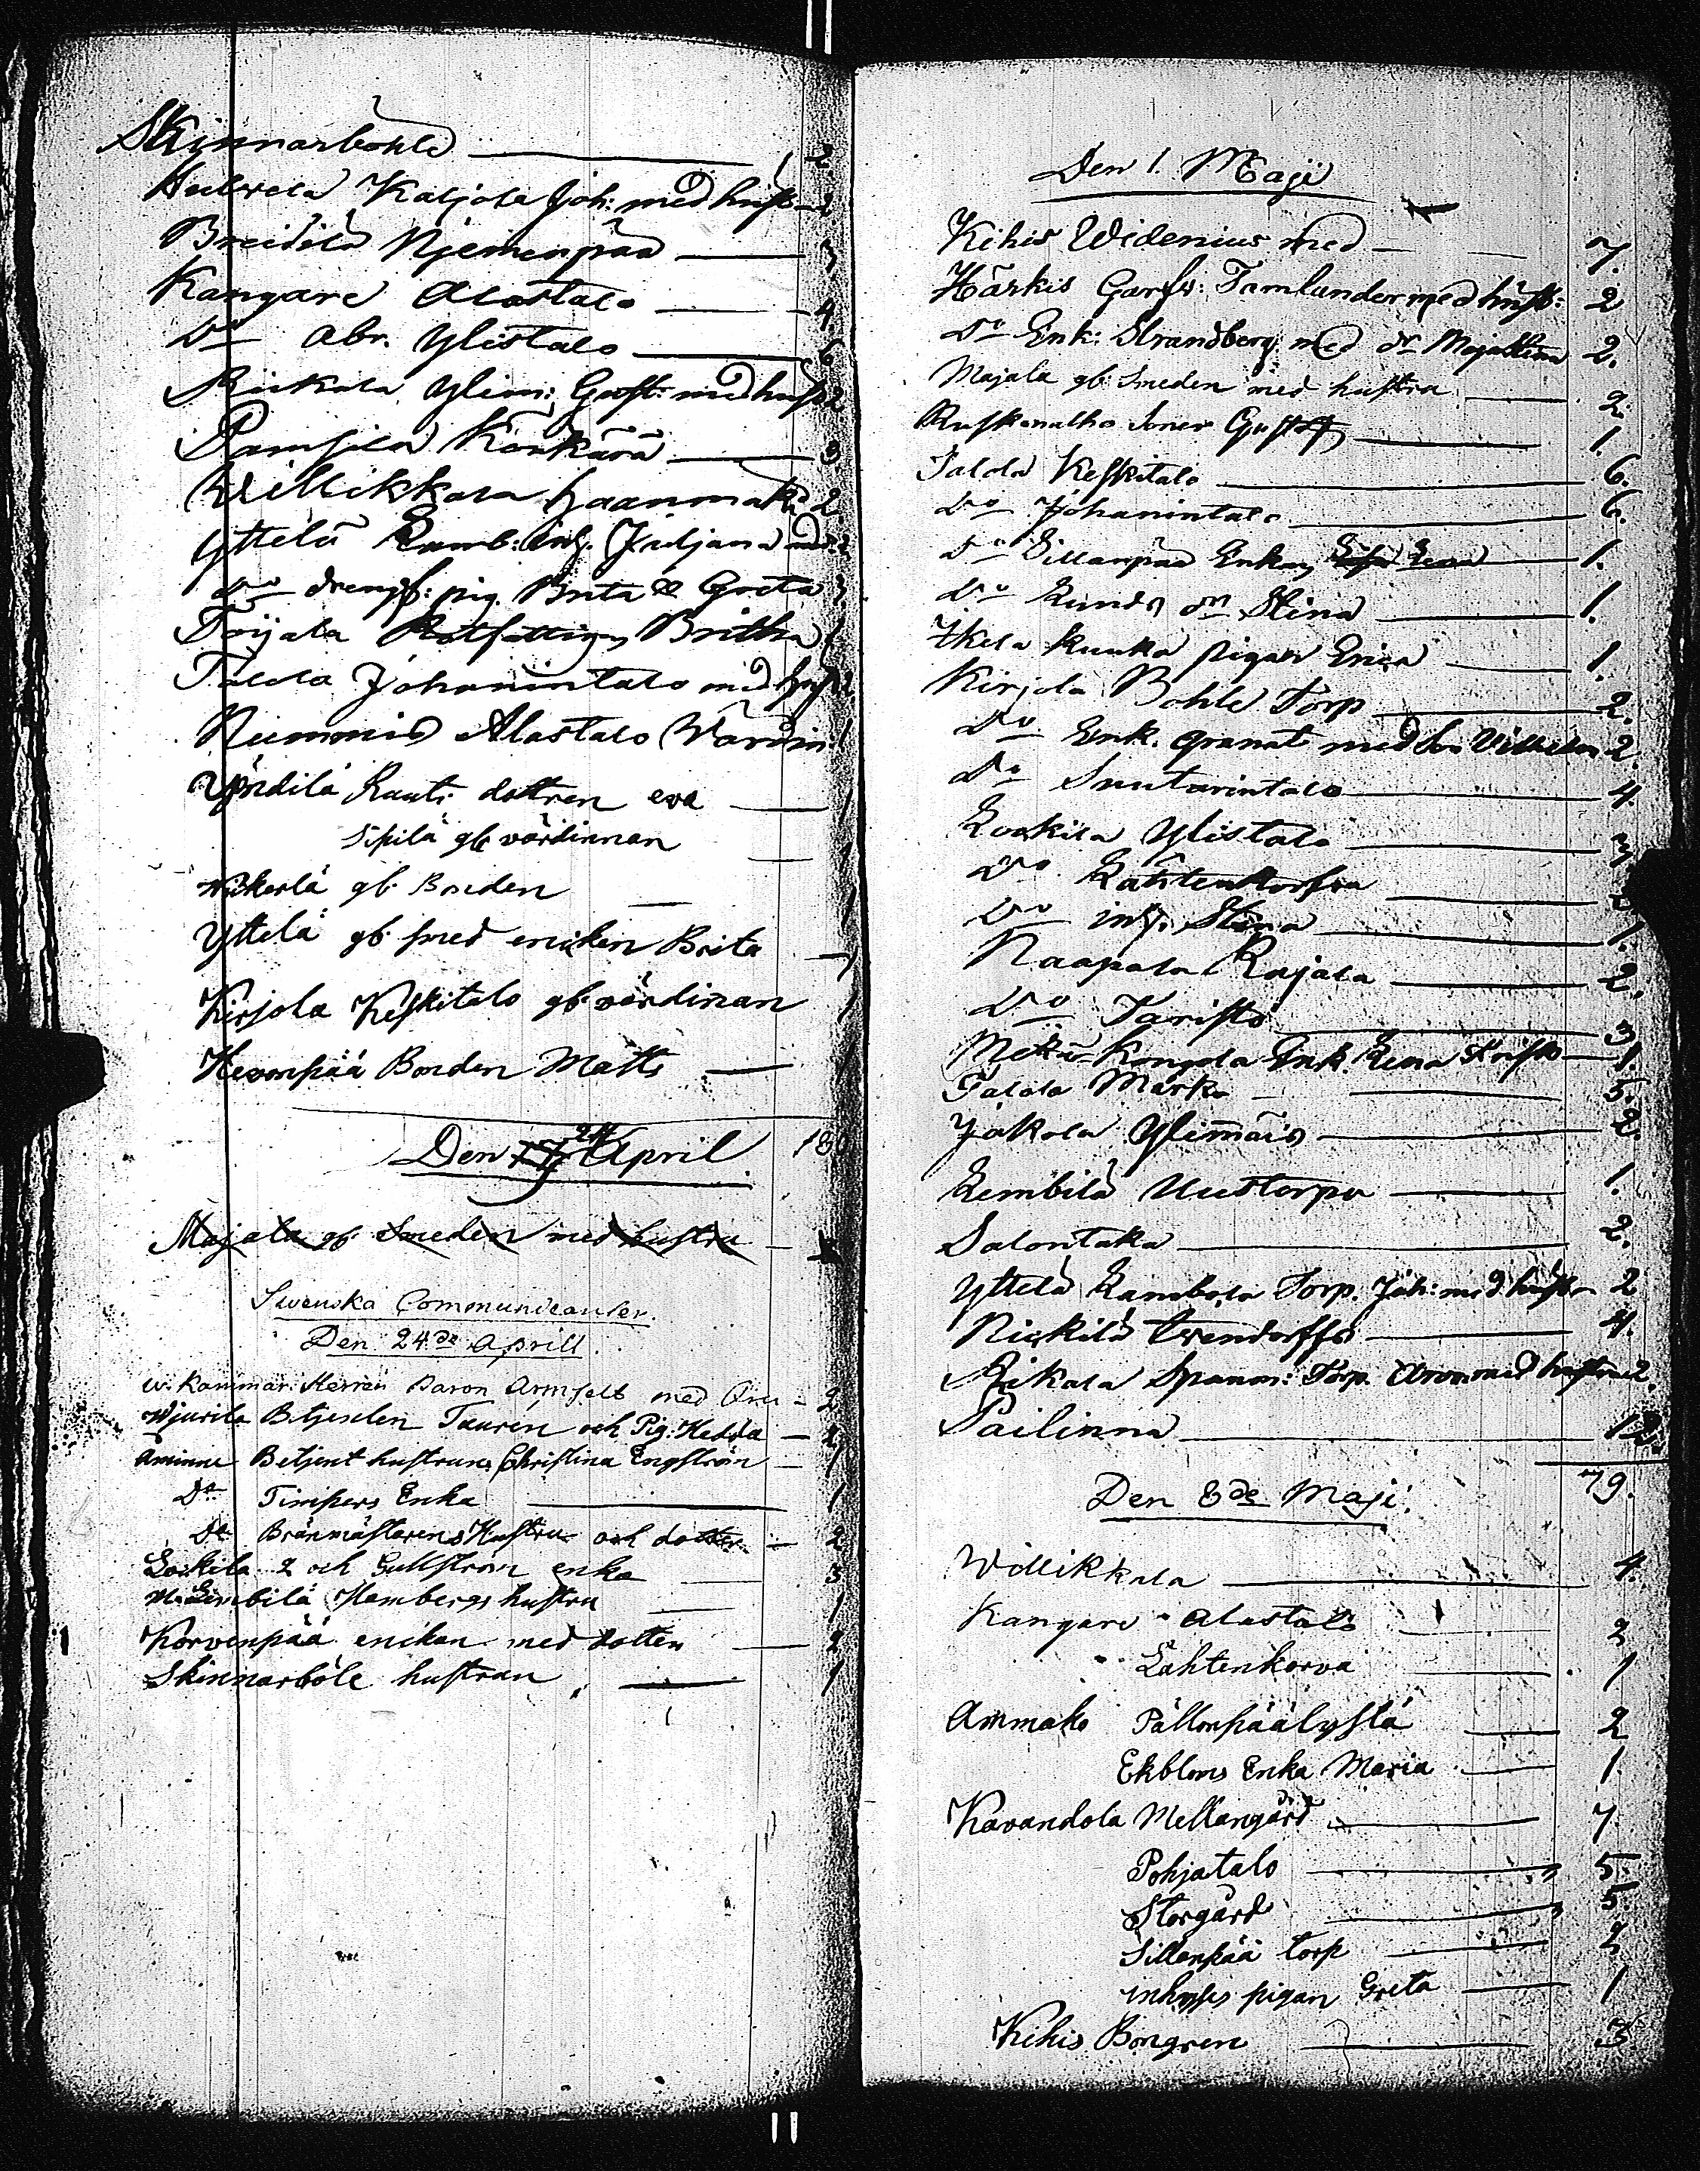 Skinnarböhle 2
Hulvela Kaljala Joh: med hust 2
Breidila Njemenpää 3
Kangare Alastalo 4
Do Abr. Ylistalo 6
Rickala Ylim: Gust: med hust 2
Pamsila Könkärä 3
Willikkala haanmäki 2
Yttelä Lamb: inh. Juljana
Do drengs: pig. Brita & Greta 3
Britha 1
Talola Johanintalo med hust 2
Nummis Alastalo Wärdin 1
Yöndilä Rauti dottren eva 1
Sipilä gb värdinnan 1
gb: Bonden 1
Yttelä gb smed enikan Brita 1
Kirjola Keskitalo gb värdinan 1
Hevonpää Bonden Matts 1
Den 24 April 180
Majala gb Smeden med hustru
Swenska Communicanter.
Den 24de Aprill.
Kammar Herren Baron Armfelt med 2
Wjurila Betjenten Tauren och Pig: Hedda 2
Åminne Betjent hustrun Christina Engström 1
Do Timpers Enka 1
Do Bränmästarens Hustru och dotter 2
Lockila 2 och Gullström enka 3
Lembilä Hambergs hustru 1
Korvenpää enikan med dotter 2
Skinnarböle hustrun 1
Den 1. Maji
Kihis Widenius med 7.
Härkis Garfv: Tamlander med hust: 2
Do Enk: Strandberg med dr Majastina 2.
Majala gb: Smeden med hustru 2.
Ruskanalho Soner Gustaf 1.
Talola Keskitalo 6.
Do Johanintalo 6.
Do Sillanpää Enkan Lena 1.
Do Lunds dr Stina 1.
Ikela kuuka pigan Erica 1.
Kirjola Bohle Torp 2.
Do Enk. Granat med Son Villhelm 2.
Do Suutarintalo 4.
Lockila Ylistalo 3
Do Lähtenkorfva
Do inh. Stina 1.
Naapala Rajala 2.
Do Taristo 3
Kongola Enk. Lena 1.
Talola Marko 5.
Jakola Ylimäis 2.
Lembilä Uustorpa 1.
Salontaka 2.
Yttelä Lambola Torp. Joh: med hustr 2
Nickilä 4.
Rikala Torp. med hustru 2.
Pailinna 12.
79.
Den 8de Maji.
Willikkala 4.
Kangare Alastalo 2
Lähtenkorva 1
Ammako Pällonpäälystä 2
Ekbloms Enka Maria 1.
Kavandola Mellangård 7
Pohjatalo 5.
Storgård 5
Sillanpää torp 2
inhyses pigan Greta 1
Kihis Bongren 3